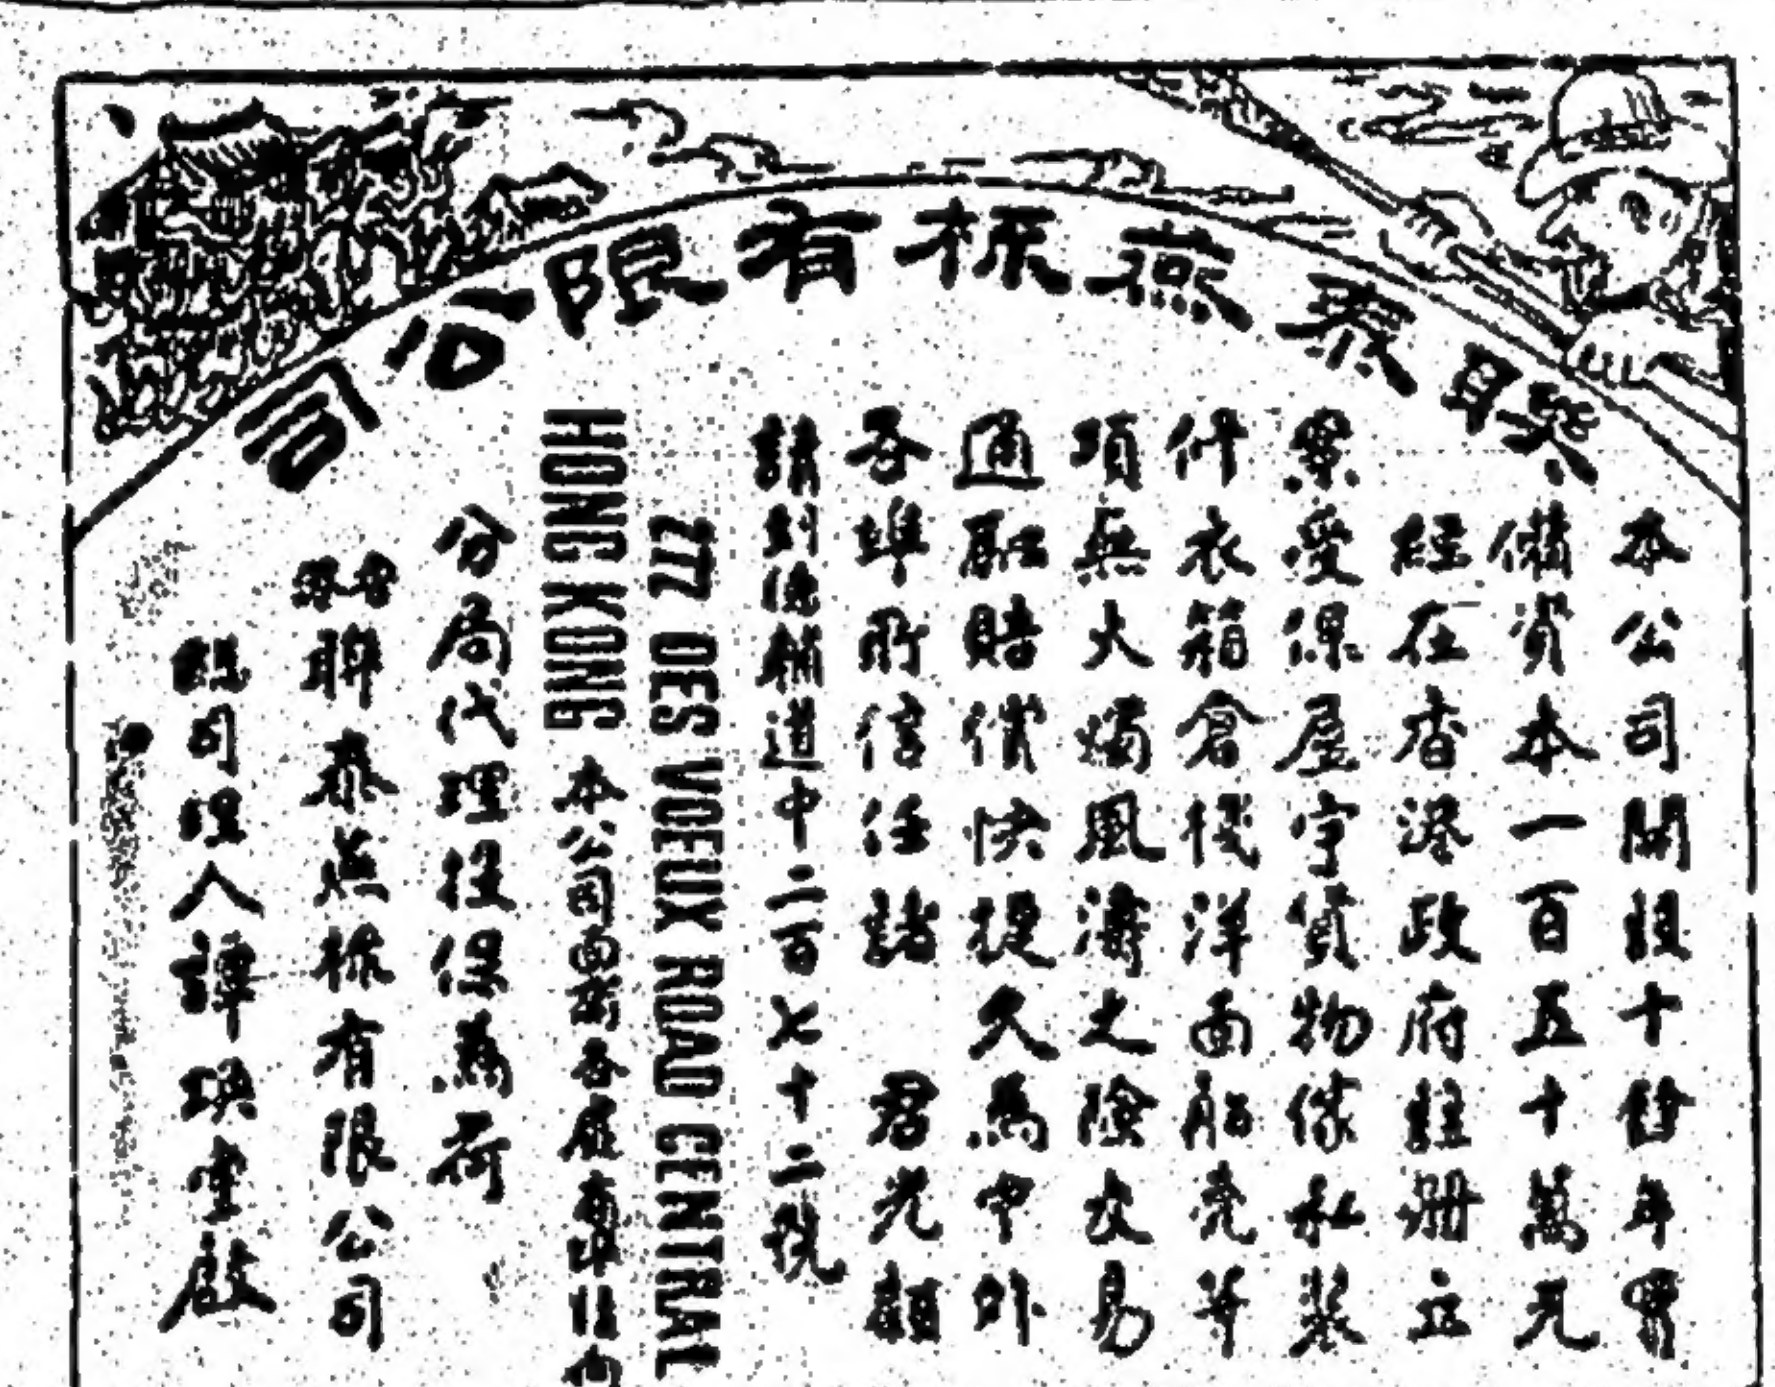 聯泰燕梳有限公司
本公司開設十餘年實
備資本一百五十萬元
經在香港政府註冊立
案受保屋宇貨物傢私裝
什衣箱倉棧洋面船壳等
項無火燭風濤之險交易
通融賠償快捷久為中外
各埠所信任諸 君光顧
請到德輔道中二百七十二號
277 DES VOEUX ROAD CENTRAL
HONG KONG 本公司
分局代理投保為荷
香港聯泰燕梳有限公司
總司理人譚煥堂啟